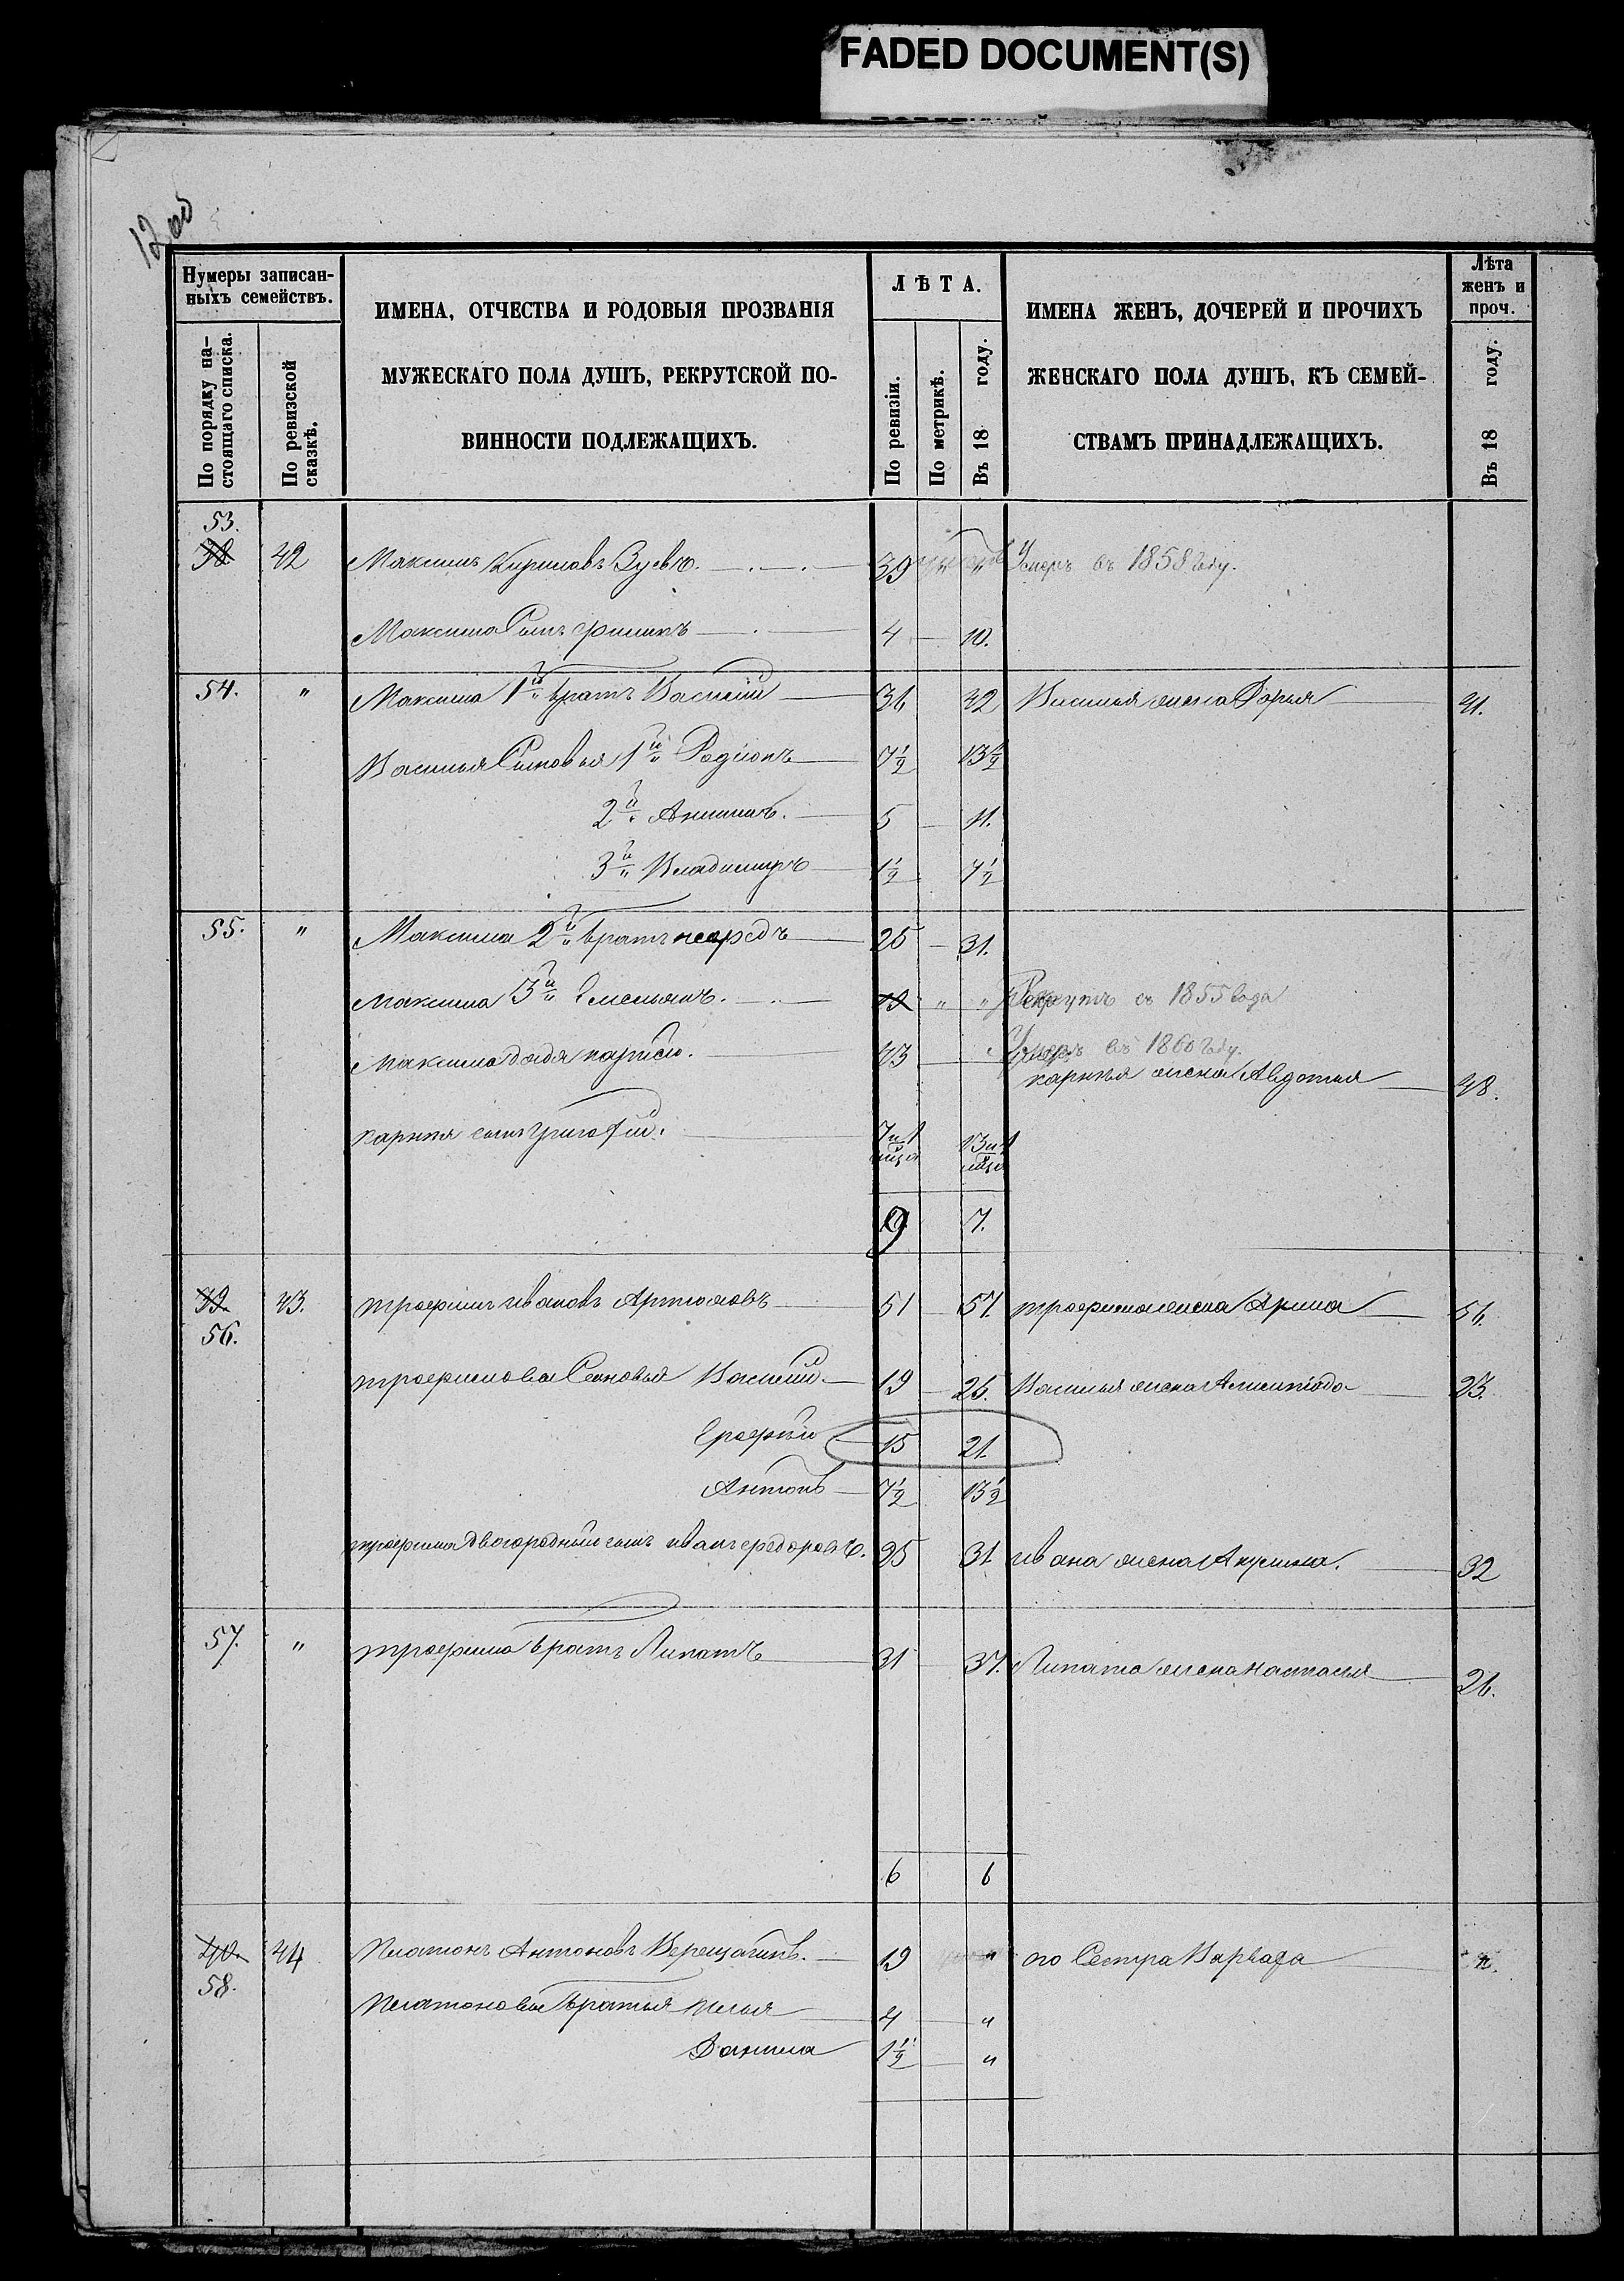 FADED DOCUMENT(S)
1200
Нумеры записан-
ныхъ семействъ.
По порядку на-
стоящаго списка.
По ревизской
сказкѣ.
ИМЕНА, ОТЧЕСТВА И РОДОВЫЯ ПРОЗВАНІЯ
МУЖЕСКАГО ПОЛА ДУШЪ, РЕКРУТСКОЙ ПО-
ВИННОСТИ ПОДЛЕЖАЩИХЪ.
ЛѢТА.
По ревизіи.
По метрикѣ.
Въ 18 году.
ИМЕНА ЖЕНЪ, ДОЧЕРЕЙ И ПРОЧИХЪ
ЖЕНСКАГО ПОЛА ДУШЪ, КЪ СЕМЕЙ-
СТВАМЪ ПРИНАДЛЕЖАЩИХЪ.
Лѣта
женъ и
проч.
Въ 18 году.
53.
38 42 Максимъ Кириловъ Зуевъ. 39 " Умеръ въ 1858 году.
Максима Сынъ Филипъ 4 10.
54. " Максима 1й братъ Василій 36 42 Василья жена Дарья 41.
Василья Сыновья 1й Родіонъ 7½ 13½
2й Акимъ. 5 11.
3й Владимиръ 1½ 7½
55. " Максима 2й братъ 25 31.
Максима 3й Емельянъ. " " Рекрутъ съ 1855 года
Максима дядя карпъй. 43 Умеръ въ 1860 году.
карпъя жена Авдотья 48.
карпъя сынъ Григорій. 7 и 1 мѣся 13 и 1 мѣся
9 7.
39. 43. трофимъ ивановъ Артюмовъ 51 57. трофима жена Арина 56.
56.
трофимова Сыновья Василій 19 26. Василья жена 23.
Ерофѣй 15 21.
Антонъ 7½ 13½
трофима двоюродный сынъ иванъ федоровъ. 25 31. ивана жена Акулина. 32
57. " трофима братъ Липатъ 31 37. Липата жена настасья 26.
6 6
40. 44 Платонъ Антоновъ Верещагинъ. 19 " его Сестра Варвара
58.
Платоновы братья Илья 4 "
Данила 1½ "